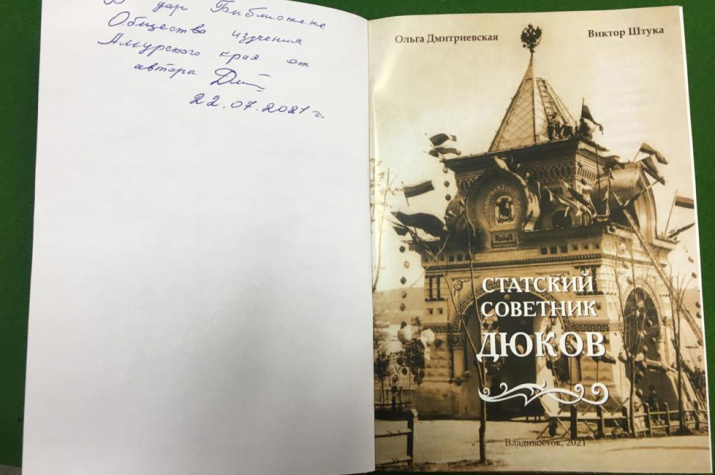 В дар Библиотеке
Общества изучения
Амурского края от
автора
22.07.2021 г.
Ольга Дмитриевская
Виктор Штука
СТАТСКИЙ
СОВЕТНИК
ДЮКОВ
Владивосток, 2021